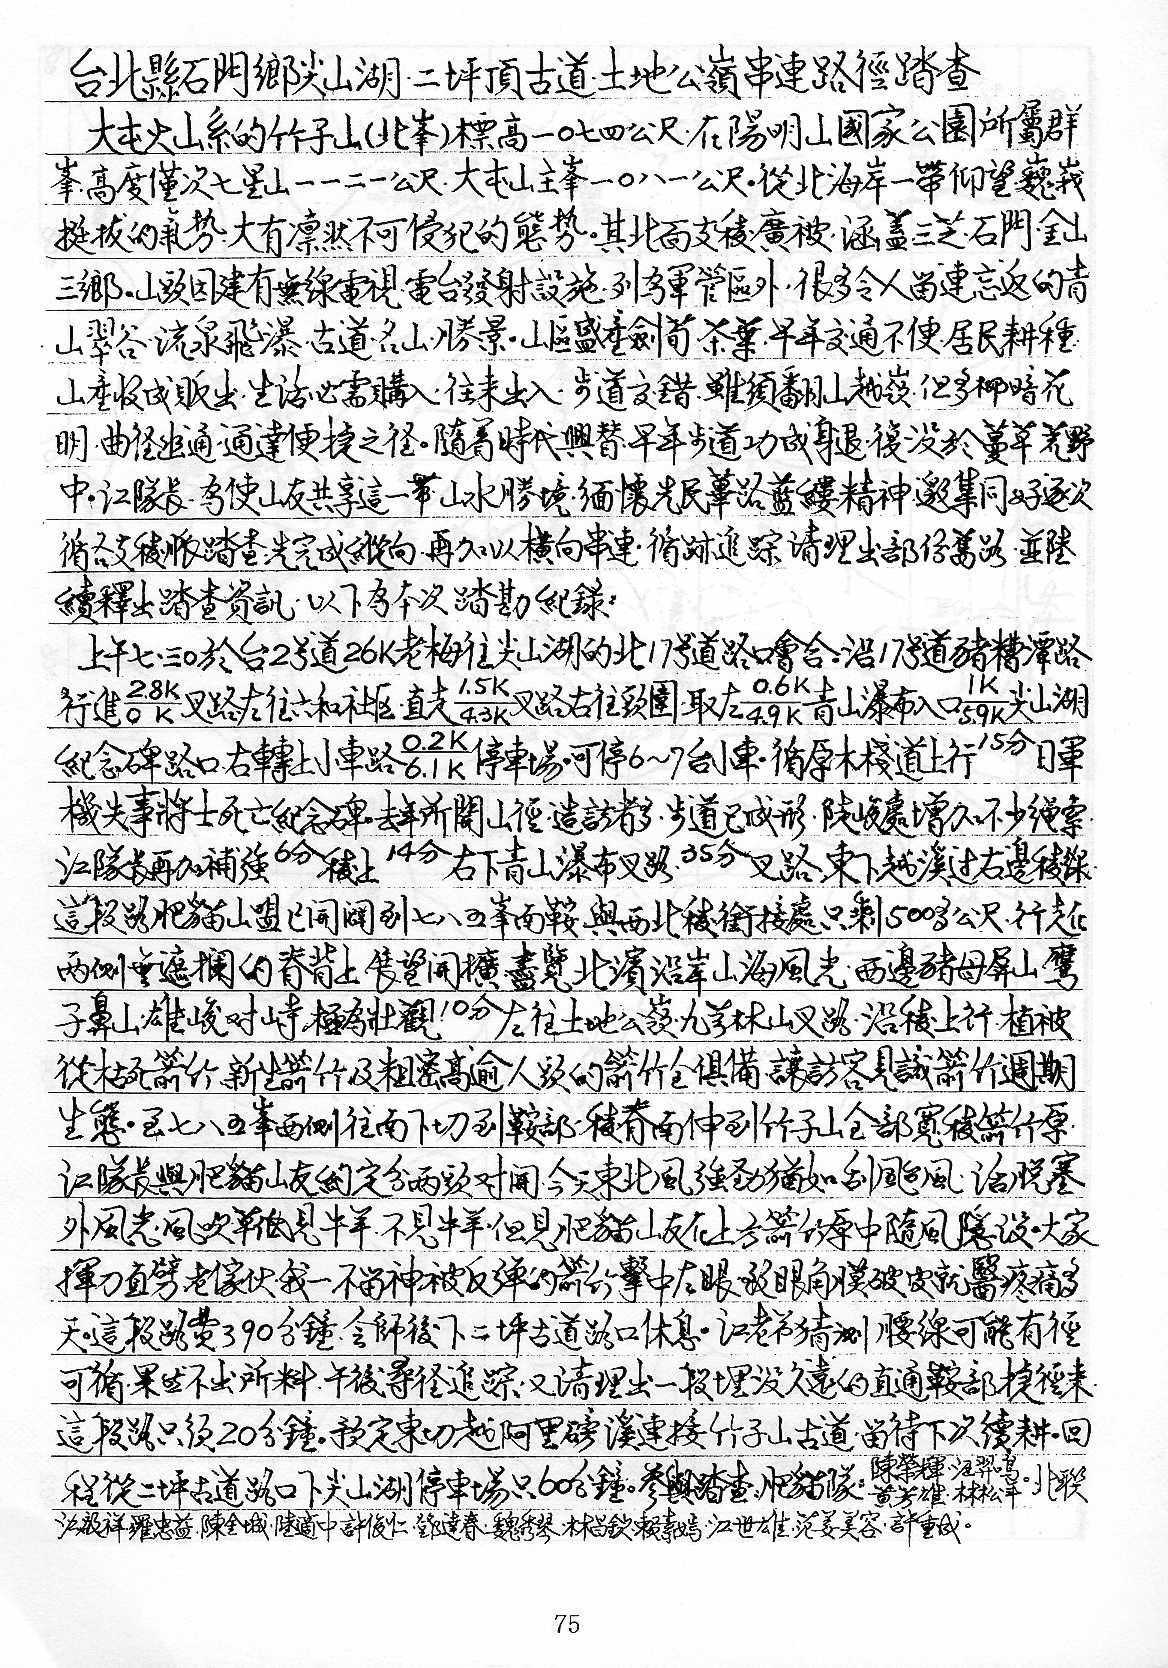 台北縣石門鄉尖山湖·二坪頂古道·土地公嶺串連路徑踏查
大屯火山系的竹子山(北峯)標高一〇七四公尺·在陽明山國家公園所屬群
峯·高度僅次七星山一一二一公尺·大屯山主峯一〇八一公尺。從北海岸一帶仰望巍峩
挺拔的氣勢·大有凛然不可侵犯的態勢。其北面支稜·廣被·涵蓋三芝·石門·金山
三鄉。山頭因建有無線電視·電台發射設施·列為軍管區外·很多令人留連忘返的青
山翠谷·流泉飛瀑·古道·名山·勝景。山區盛產劍荀·茶葉·早年交通不便·居民耕種·
山產收成販出·生活必需購入·往來出入·步道交錯·雖須翻山越嶺·但多柳暗花
明·曲径幽通·通達便捷之径。隨着時代興替·早年步道功成身退·復没於蔓草荒野
中。江隊長·為使山友共享這一帶山水勝境·緬懷先民蓽路藍縷精神·邀集同好逐次
循各支稜脈踏查·先完成縱向·再加以橫向串連·循跡追踪·请理出部份舊路·並陸
續釋出踏查資訊·以下為本次踏勘紀錄:
上午七·三〇於台2号道26K老梅往尖山湖的北17号道路口會合。沿17号道豬槽潭路
行進2.8K/0K叉路左往六和社区·直走1.5K/4.3K叉路右往頭圍·取左0.6K/4.9K青山瀑布入口1K/5.9K尖山湖
紀念碑路口·右轉上小車路0.2K/6.1K停車場·可停6～7台小車·循原木棧道上行15分日軍
機失事將士死亡紀念碑·去年所開山徑·造訪者多·步道已成形·陡峻處增加不少繩索·
江隊長再加補強6分稜上14分右下青山瀑布叉路·35分叉路·東下越溪过右邊稜線·
這段路肥貓山盟已開闢到七八五峯南鞍·與西北稜銜接處只剩500多公尺·行走在
兩側無遮攔的脊背上·展望開擴·盡覽北濱沿岸山海風光·西邊豬母屏山·鷹
子鼻山·雄峻对峙·極為壯觀10分左往土地公嶺·九芎林山叉路·沿稜上行·植被
從枯死箭竹·新生箭竹及粗密高逾人頭的箭竹全俱備·讓訪客見識箭竹週期
生態。至七八五峯西侧往南下切到鞍部·稜脊南伸到竹子山全部寬稜箭竹原·
江隊長與肥貓山友約定分兩頭对開·今天東北風強勁猶如刮颱風·活脱塞
外風光·風吹草低見牛羊·不見牛羊·但見肥貓山友在上方箭竹原中隨風隱没·大家
揮刀直劈·老傢伙我一不留神被反彈的箭竹擊中左眼·致眼角膜破皮就醫·疼痛多
天。這段路費了90分鐘·会師後下二坪古道路口休息。江老爷猜測腰線可能有徑
可循·果然不出所料·午後尋径追踪·又请理出一段埋没久遠的直通鞍部捷徑来·
這段路只須20分鐘。預定東切越阿里磅溪連接竹子山古道·留待下次續耕。回
程從二坪古道路口下尖山湖停車場只60分鐘。參與踏查·肥貓隊·陳榮輝·汪羿鳴·黃芳雄·林松平·北联
江毅祥·羅忠益·陳全城·陸適中·許俊仁·鄧達春·魏秀琴·林昌欽·賴素嫣·江世雄·范姜美容·許重成。
75